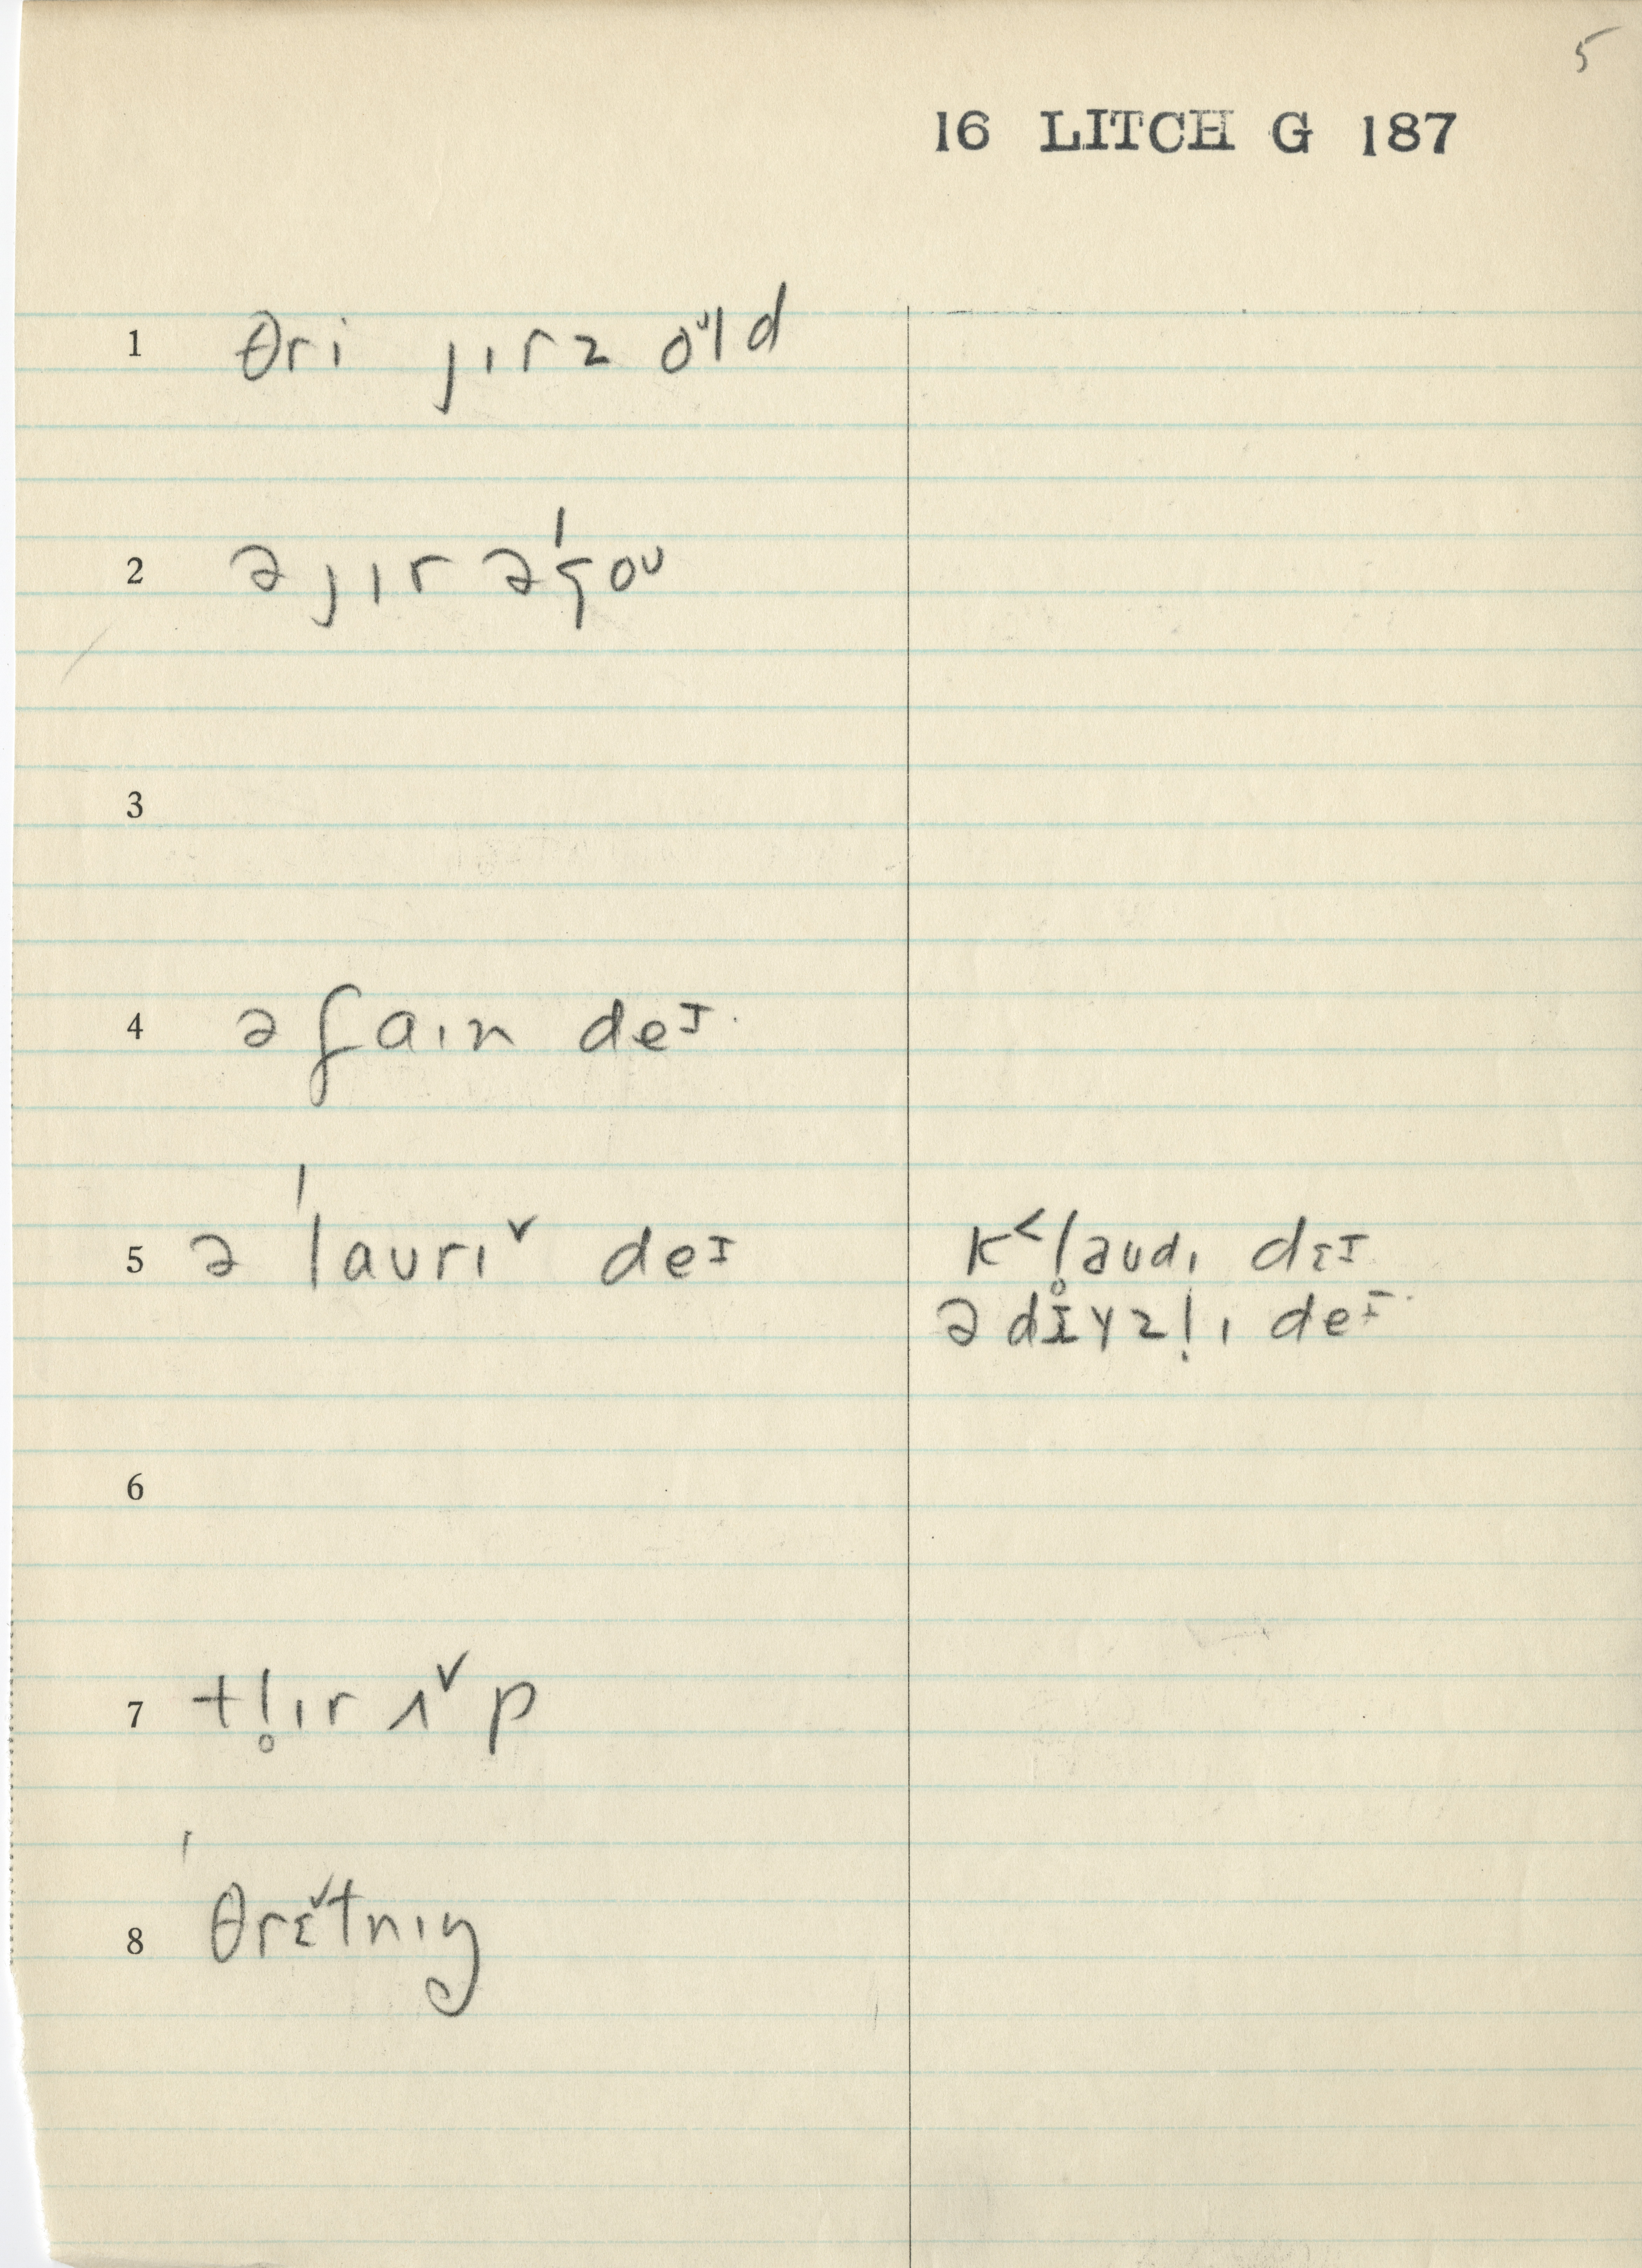 5
16 LITCH G 187
1 θri jɪrz oᶷld
2 ə jɪr əˈgoᴜ
3
4 ə faɪn deᶦ
5 ə ˈlaʊrɪ˅ deᶦ k˂l̥aʊdɪ dɛᶦ
ə dɪ̝yzl̩ɪ deᶦ
6
7 tl̥ɪr ʌ˅p
8 ˈθrɛ˅tnɪŋ